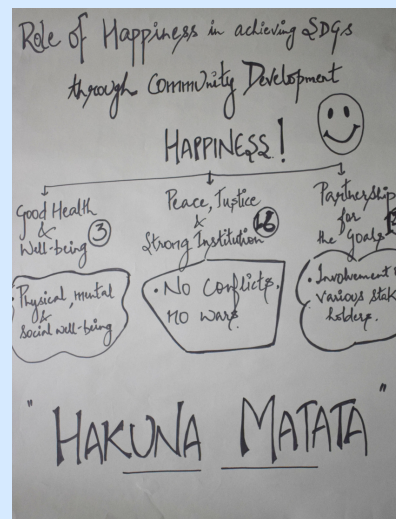 Role of Happiness in achieving SDGs
through Community Development
HAPPINESS!
Good Health
&
Well-being 3
Peace, Justice
&
Strong Institution 16
Partnership
for
the Goals
Physical, mental
&
social well-being
• No conflicts.
No wars
• Involvement
various
holders.
"HAKUNA MATATA"